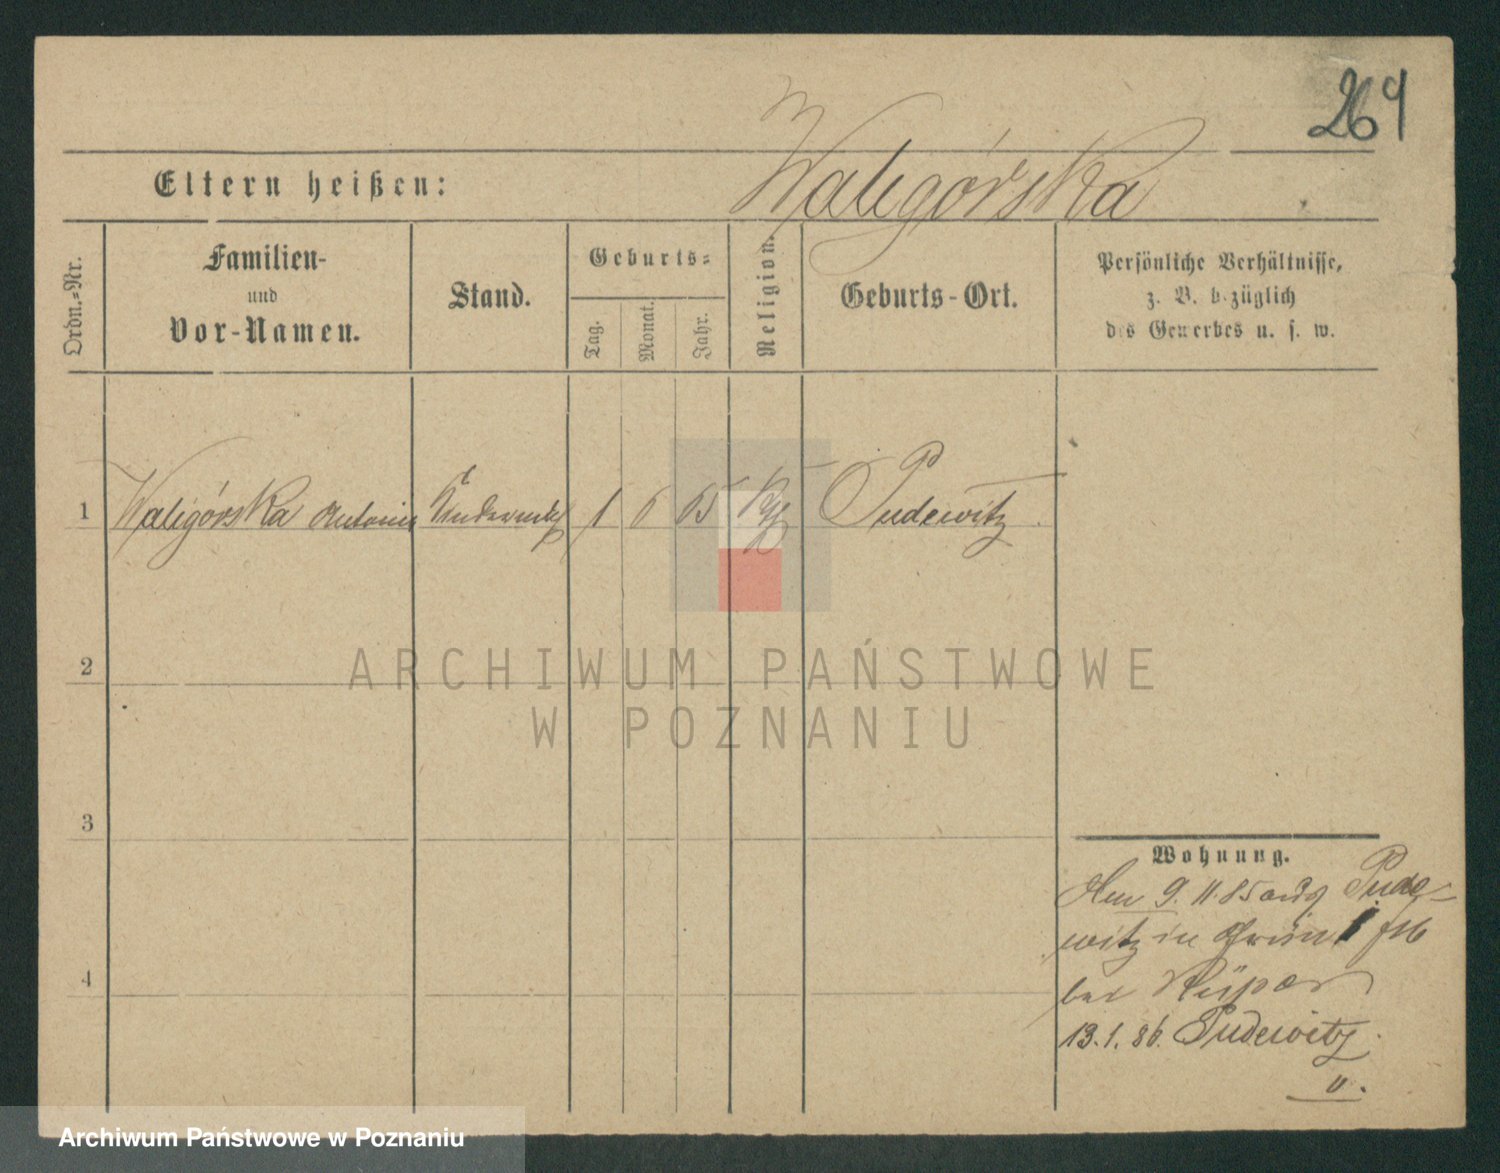 264
Eltern heißen:
Waligórska
Ordn.-Nr.
Familien-
und
Vor-Namen.
Stand.
Geburts-
Tag.
Monat.
Jahr.
Religion.
Geburts-Ort.
Persönliche Verhältnisse,
z. B. bezüglich
des Gewerbes u. s. w.
1 Waligórska Antonie 1 6 65 Pudewitz
2
ARCHIWUM PAŃSTWOWE
W POZNANIU
3
Wohnung.
9. 11. 85 aus Pude-
witz in Grün 1
bei
4
13. 1. 86. Pudewitz.
Archiwum Państwowe w Poznaniu